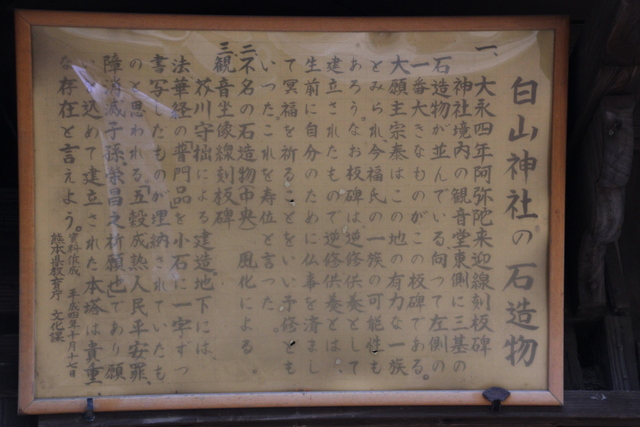 白山神社の石造物
一、大永四年阿弥陀来迎線刻板碑
神社境内の観音堂東側に三基の
石造物が並んでいる。向って左側の
一番大きなものがこの板碑である。
大願主宗泰はこの地の有力な一族
とみられ、今福氏の一族の可能性も
あろう。なお板碑は逆修供養として
建立されたもので逆修供養とは、
生前に自分のために仏事を済まし
て冥福を祈ることをいい予修とも
いった。これを寿位と言った。
二、不名の石造物(中央) 風化による
三、観音坐像線刻板碑
芥川守拙による建造。地下には、
法華経の「普門品」を小石に一字ずつ
書写したものが埋納されていたも
のと思われる。「五穀成熟人民平安罪
障消滅子孫栄昌之祈願也」であり願
い込めて建立された本塔は貴重
な存在と言えよう。
資料作成 平成四年十月十七日
熊本県教育庁 文化課